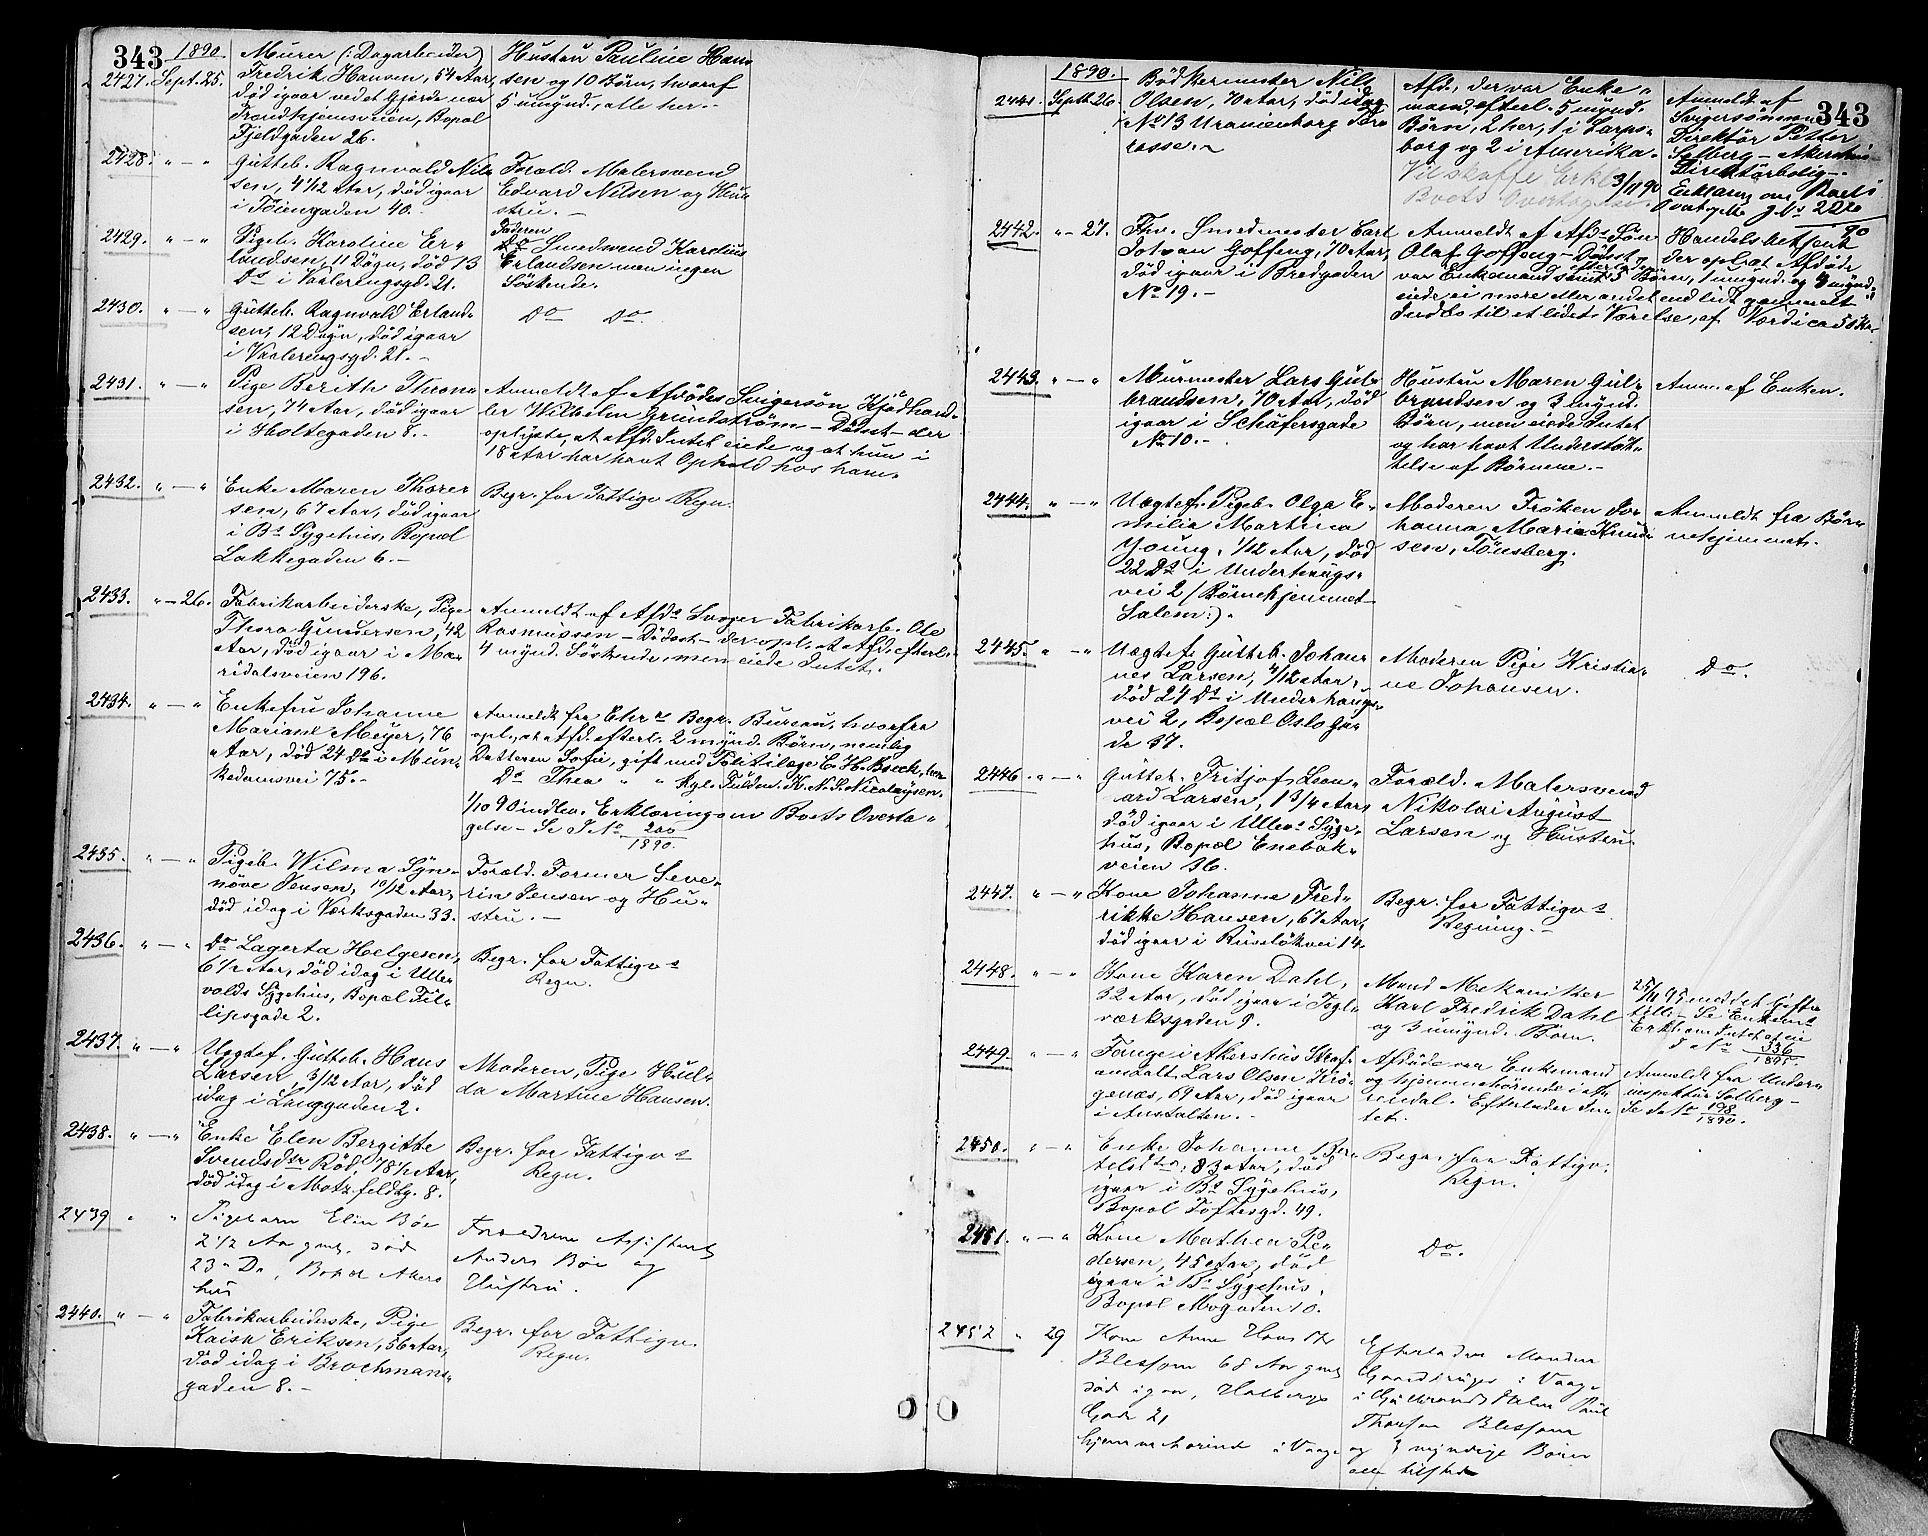 343
1890.
2427. Sept. 25.
Murer (: Dagarbeider)
Fredrik Hansen, 54 Aar,
død igaar ved et Gjerde nær
Trondhjemsveien, Bopæl
Fjeldgaden 26.
Hustru Pauline Han-
sen og 10 Børn, hvoraf
5 umynd., alle her.
2428. " — "
Gutteb. Ragnvald Nils
sen, 4 1/12 Aar, død igaar
i Tøiengaden 40.
Foræld. Malersvend
Edvard Nilsen og Hu-
stru. —
2429. " — "
Pigeb. Karoline Er-
landsen, 11 Døgn, død 13
Ds i Vaalerengsgd. 21.
Faderen
Do Smedsvend Karelius
Erlandsen men ingen
Søskende.
2430. " — "
Gutteb. Ragnvald Erland-
sen, 12 Døgn, død igaar
i Vaalerengsgd. 21. —
Do Do.
2431. " — "
Pige Berith Thron
sen, 74 Aar, død igaar
i Holtegaden 8. —
Anmeldt af Afdødes Svigersøn Kjødhand-
ler Wilhelm Grundstrøm — Dødsst — der
oplyste, at Afd. Intet eiede og at hun i
18 Aar har havt Ophold hos ham.
2432. " — "
Enke Maren Thorer
sen, 67 Aar, død igaar
i Bs Sygehus, Bopæl
Lakkegaden 6. —
Begr. for Fattigv. Regn.
2433. " — 26.
Fabrikarbeiderske, Pige
Thora Gundersen, 42
Aar, død igaar i Ma-
ridalsveien 196.
Anmeldt af Afds Svoger Fabrikarb. Ole
Rasmussen — Dødsst — der opl. at Afd. efterl.
4 mynd. Søskende, men eiede Intet.
2434. " — "
Enkefru Johanne
Mariane Meyer, 76
Aar, død 24 Ds i Mun-
kedamsvei 75. —
Anmeldt fra Ehrs Begr. Bureau, hvorfra
opl., at Afd. efterl. 2 mynd. Børn, nemlig
Datteren Sofie, gift med Politilæge E. H. Boeck, her
Do Thea " " Kgl. Fuldm. K. N. S. Nicolaysen.
1/10 90 indlev. Erklæring om Boets Overta-
gelse — Se J. No 200/1890.
2435. " — "
Pigeb. Wilma Syn-
nøve Jensen, 10/12 Aar,
død idag i Værksgaden 33.
Foræld. Former Seve-
rin Jensen og Hu-
stru. —
2436. " — "
Do Lagerta Helgesen,
6 1/2 Aar, død idag i Ulle-
volds Sygehus, Bopæl Fil-
lipsgade 2.
Begr. for Fattigvs
Regn.
2437. " — "
Uægtef. Gutteb. Hans
Larsen, 3/12 Aar, død
idag i Langgaden 2.
Moderen, Pige Hul-
da Martine Hansen.
2438. " — "
Enke Elen Bergitte
Svendsdtr Rød, 78 1/2 Aar,
død idag i Motzfeldtg. 8.
Begr. for Fattigvs
Regn.
2439 " "
Pigebarn Elin Bøe
2 1/2 Aar gml. død
23 Ds, Bopæl Akers
hus
Forældrene Assistent
Anders Bøe og
Hustru.
2440. " — "
Fabrikarbeiderske, Pige
Kaisa Eriksen, 56 Aar,
død idag i Brochmans-
gaden 8. —
Begr. for Fattigv.
Regn.
343
1890.
2441. Septb. 26.
Bødkermester Nils
Olsen, 70 Aar, død idag
No 13 Uranienborg Ter-
rasse.
Afd., der var Enke-
mand, efterl. 5 mynd.
Børn, 2 her, 1 i Sarps-
borg og 2 i Amerika.
Vil skaffe Erkl.
Boets Overtagelse.
Anmeldt af
Svigersønnen
Direktør Petter
Solberg — Akershus
Direktørbolig. —
3/11 90 Erklæring om Boets
Overtagelse J. No 222/90
2442. " — 27.
Fhv. Smedmester Carl
Johan Goffeng, 70 Aar,
død igaar i Bredgaden
No 19. —
Anmeldt af Afds Søn Handelsbetjent
Olaf Goffeng — Dødsst — der oplyst Afdøde
var Enkemand samt efterlod 5 Børn, 1 umynd. og 4 mynd.,
eiede ei mere eller andet end lidt gammelt
Indbo til et lidet Værelse, af Værdi ca 50 Kr.
2443. " — "
Murmester Lars Gul-
brandsen, 70 Aar, død
igaar i Schäfersgade
No 10. —
Hustru Maren Gul-
brandsen og 3 mynd.
Børn, men eiede Intet
og har havt Understøt-
telse af Børnene. —
Anm. af Enken.
2444. " — "
Uægtef. Pigeb. Olga E-
milie Martina
Young, 1/12 Aar, død
22 Ds i Underhaugs-
vei 2 (Børnehjemmet
Salem:).
Moderen Frøken Jo-
hanna Marie Knud
sen, Tønsberg.
Anmeldt fra Bør-
nehjemmet.
2445. " — "
Uægtef. Gutteb. Johan-
nes Larsen, 4/12 Aar,
død 24 Ds i Underhaugs-
vei 2, Bopæl Oslo Ga-
de 37.
Moderen Pige Kristia-
ne Johansen.
Do.
2446. " — "
Gutteb. Fritjof Leon-
ard Larsen, 1 3/4 Aar
død igaar i Ullevs Syge-
hus, Bopæl Enebak-
veien 16.
Foræld. Malersvend
Nikolai August
Larsen og Hustru.
2447. " — "
Kone Johanne Fred-
rikke Hansen, 67 Aar,
død igaar i Ruseløkvei 14.
Begr. for Fattigvs
Regning. —
2448. " — "
Kone Karen Dahl,
32 Aar, død igaar i Tegl-
værksgaden 9.
Mand Mekaniker
Karl Fredrik Dahl
og 3 umynd. Børn.
25/11 95 meddelt Gifte
till. — Se Enkem.s
Erkl. om Intet at eie
J. No 336/1895.
2449. " — "
Fange i Akershus Straf-
anstalt Lars Olsen Kiø-
genæs, 69 Aar, død igaar
i Anstalten. —
Afdøde var Enkemand
og hjemmehørende i A-
rendal. Efterlader In-
tet.
Anmeldt fra Under-
inspektør Solberg —
Se J. No 198/1890.
2450. " — "
Enke Johanne Ber-
telsdtr, 83 Aar, død
igaar i Bs Sygehus,
Bopæl Toftesgd. 49.
Begr. for Fattigv.
Regn.
2451. " — "
Kone Mathea Pe-
dersen, 45 Aar, død
igaar i Bs Sygehus,
Bopæl Mogaden 10.
Do.
2452 " 29
Kone Anne Hansdtr
Blessom 68 Aar gml
død igaar, Holbergs
Gade 21
hjemmehørende i Vaage
Efterlader Manden
Gaardbruger i Vaage
i Gulbrandsdalen Paul
Thorsen Blessom
og 3 myndige Børn
alle tilstede